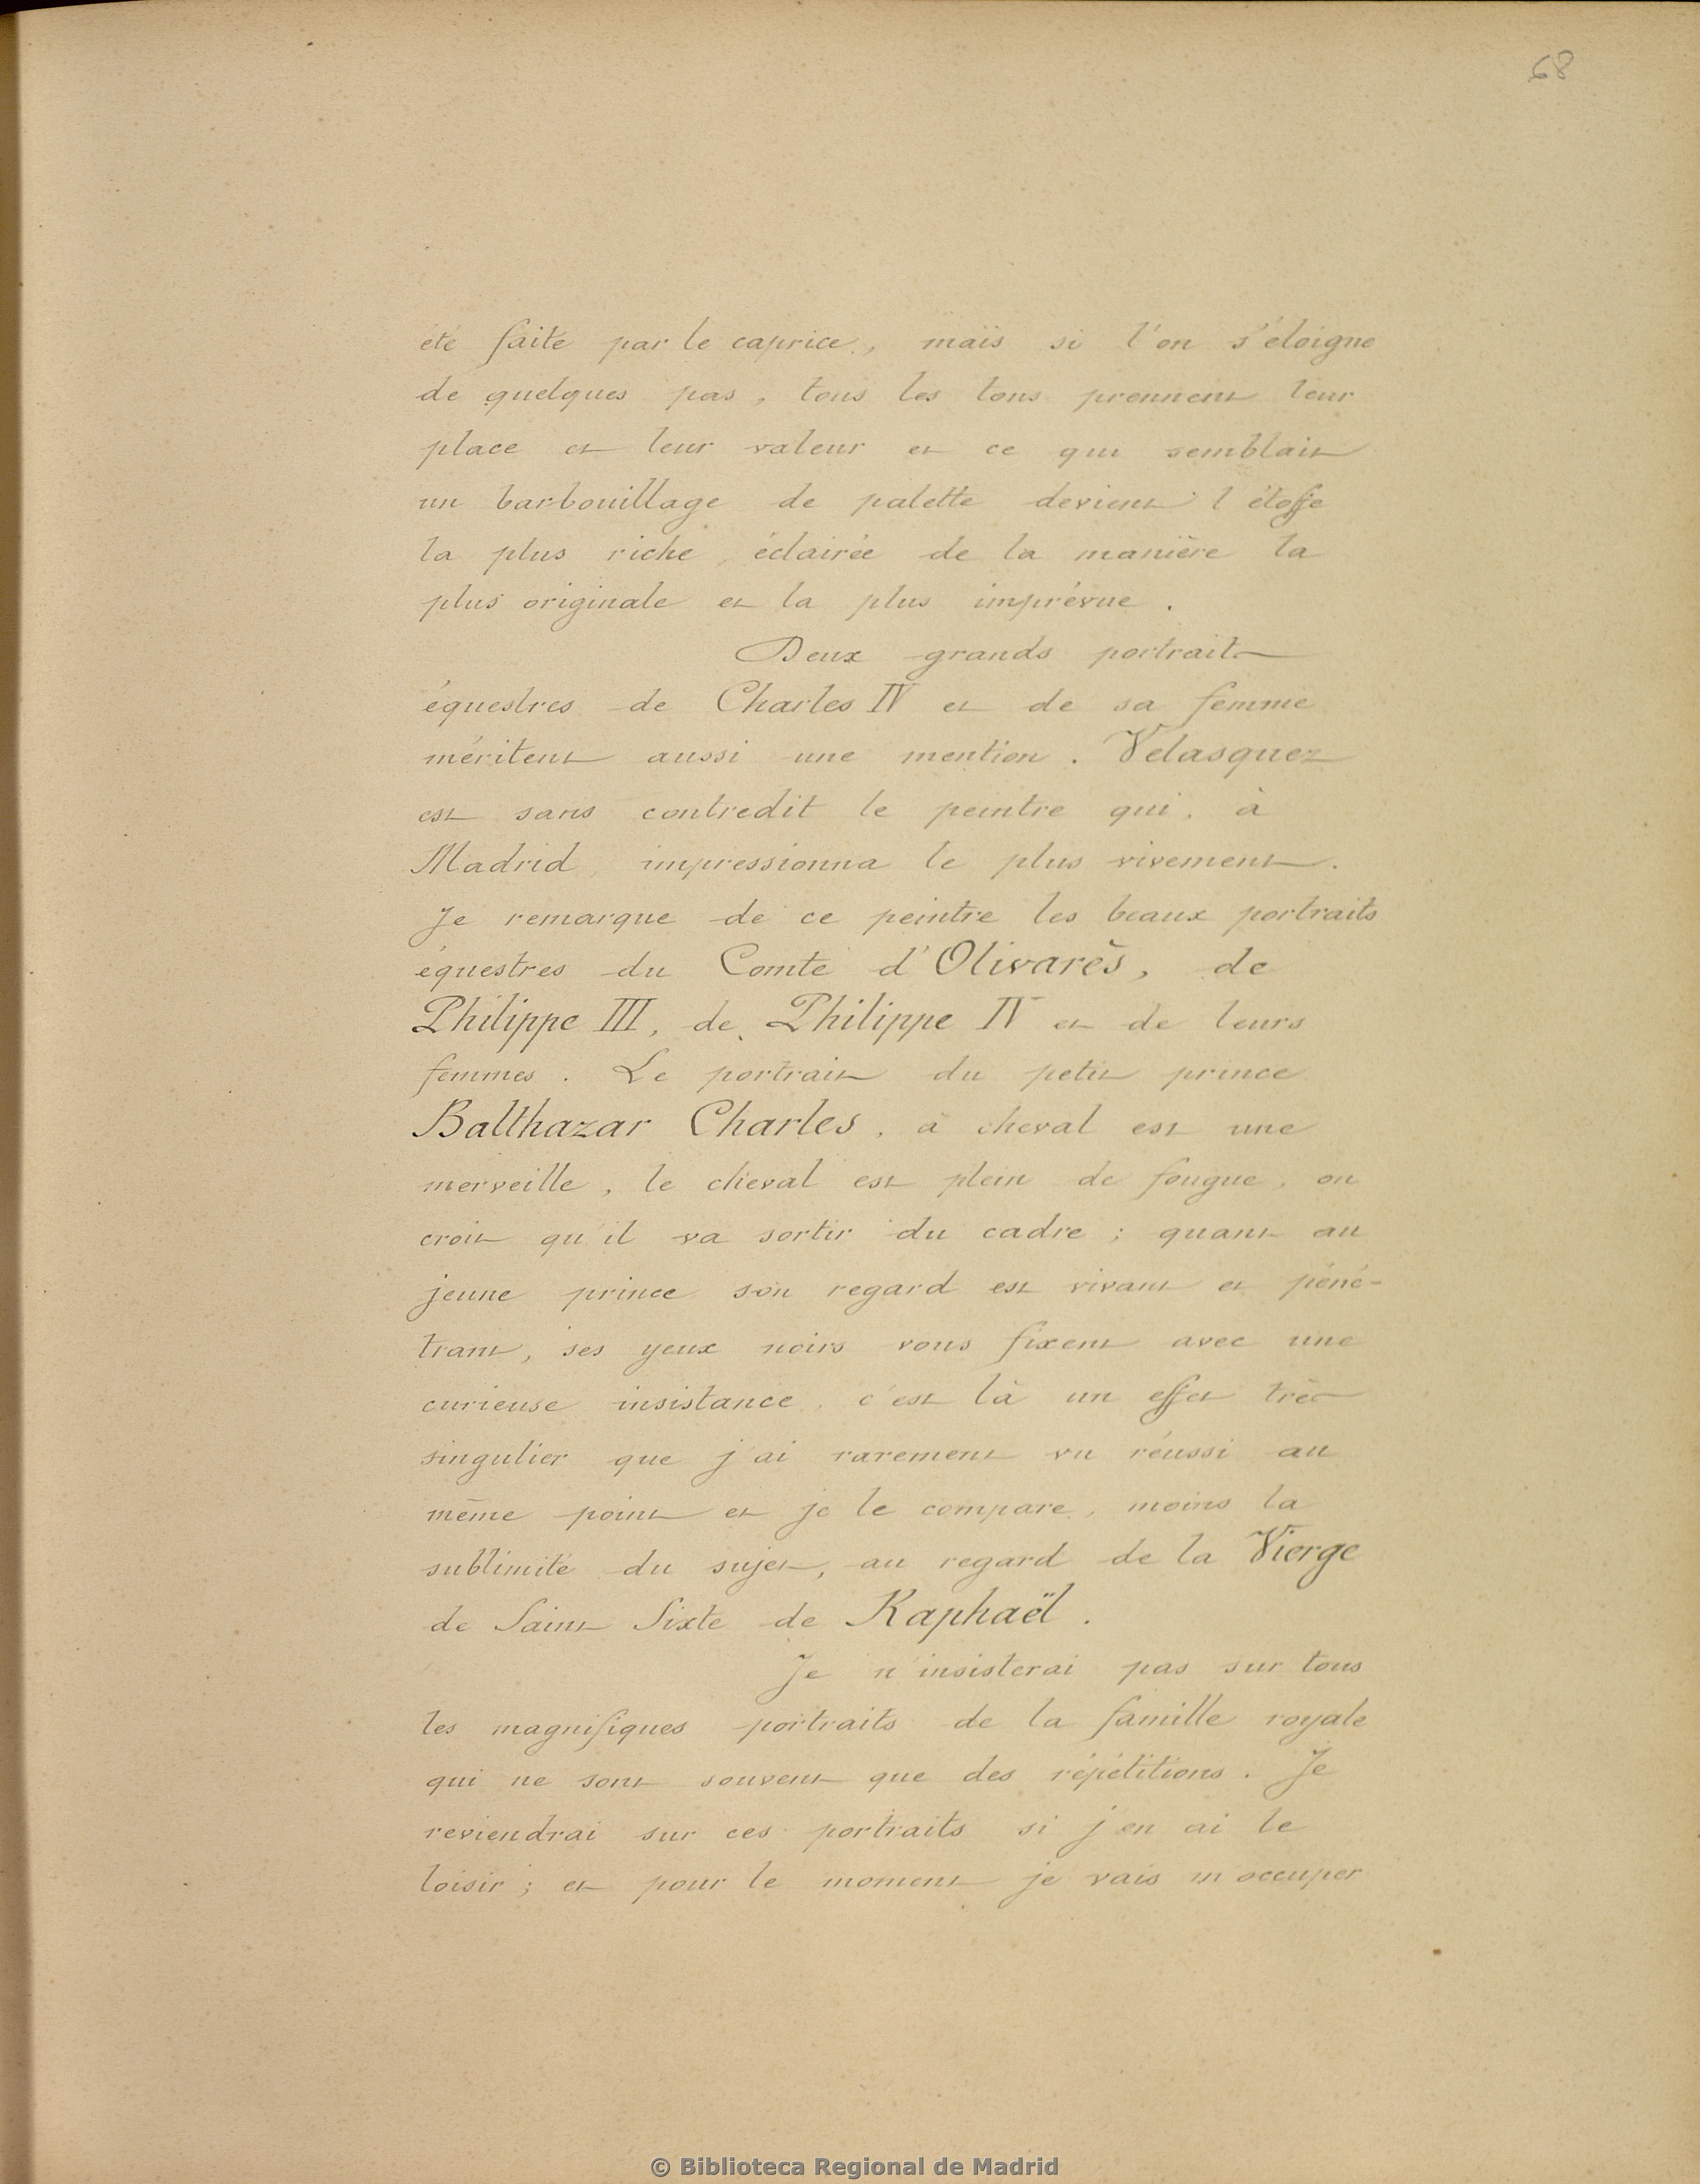 68
été faite par le caprice, mais si l'on s'éloigne
de quelques pas, tous les tons prennent leur
place et leur valeur et ce qui semblait
un barbouillage de palette devient l'étoffe
la plus riche, éclairée de la manière la
plus originale et la plus imprévue.
Deux grands portraits
équestres de Charles IV et de sa femme
méritent aussi une mention. Velasquez
est sans contredit le peintre qui, à
Madrid, impressionna le plus vivement.
Je remarque de ce peintre les beaux portraits
équestres du Comte d'Olivarès, de
Philippe III, de Philippe IV et de leurs
femmes. Le portrait du petit prince
Balthazar Charles, à cheval est une
merveille, le cheval est plein de fougue, on
croit qu'il va sortir du cadre; quant au
jeune prince son regard est vivant et péné-
trant, ses yeux noirs vous fixent avec une
curieuse insistance, c'est là un effet très
singulier que j'ai rarement vu réussi au
même point et je le compare, moins la
sublimité du sujet, au regard de la Vierge
de Saint Sixte de Raphaël.
Je n'insisterai pas sur tous
les magnifiques portraits de la famille royale
qui ne sont souvent que des répétitions. Je
reviendrai sur ces portraits si j'en ai le
loisir; et pour le moment je vais m'occuper
© Biblioteca Regional de Madrid